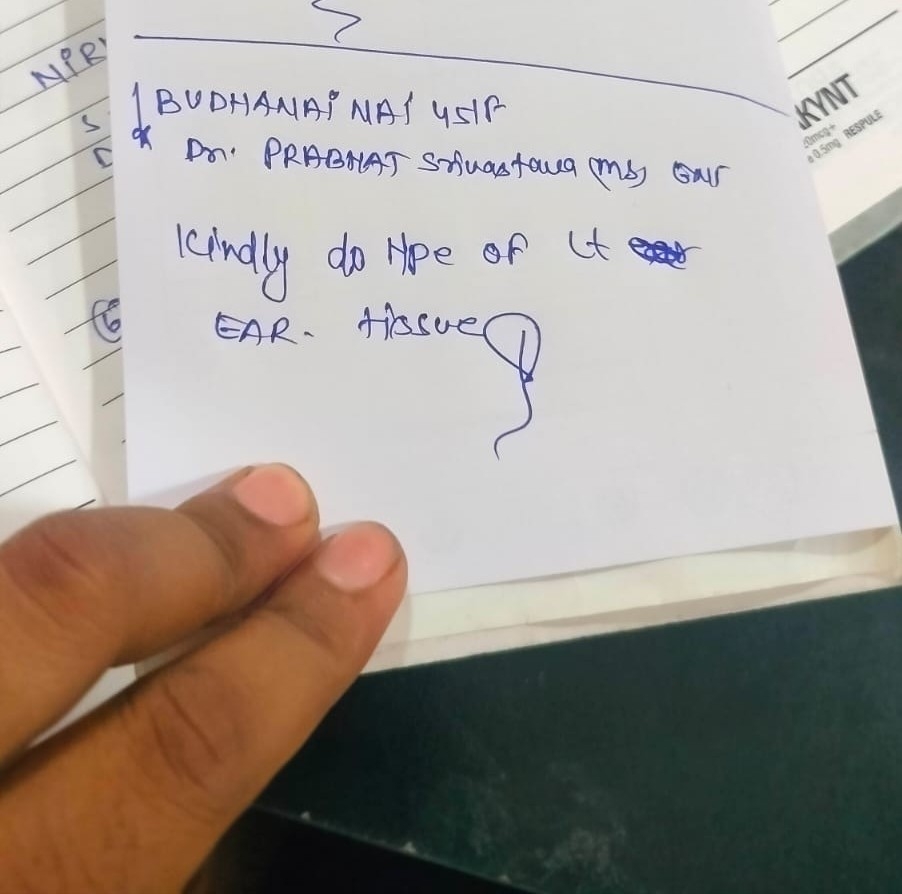 NIR
S
D
6
BUDHANAI NAI 45/F
Dr. PRABHAT Srivastava (MS) ENT
Kindly do HPE of Lt
EAR. tissue
KYNT
20mcg+
0.5mg RESPULE